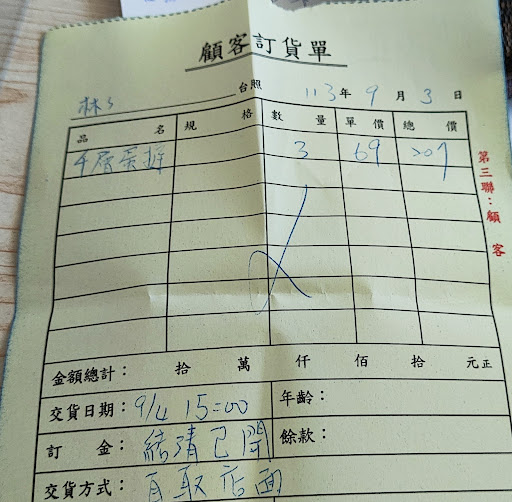 顧客訂貨單
林S 台照 113年9月3日
品名 規格 數量 單價 總價
千層蛋捲 3 69 207
第三聯：顧客
金額總計： 拾 萬 仟 佰 拾 元正
交貨日期：9/4 15=00 年齡：
訂金：結清已開 餘款：
交貨方式：自取店面